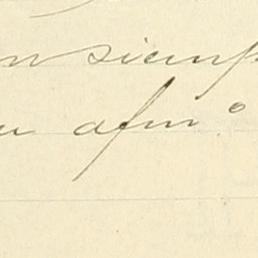 n siemp
u afmº